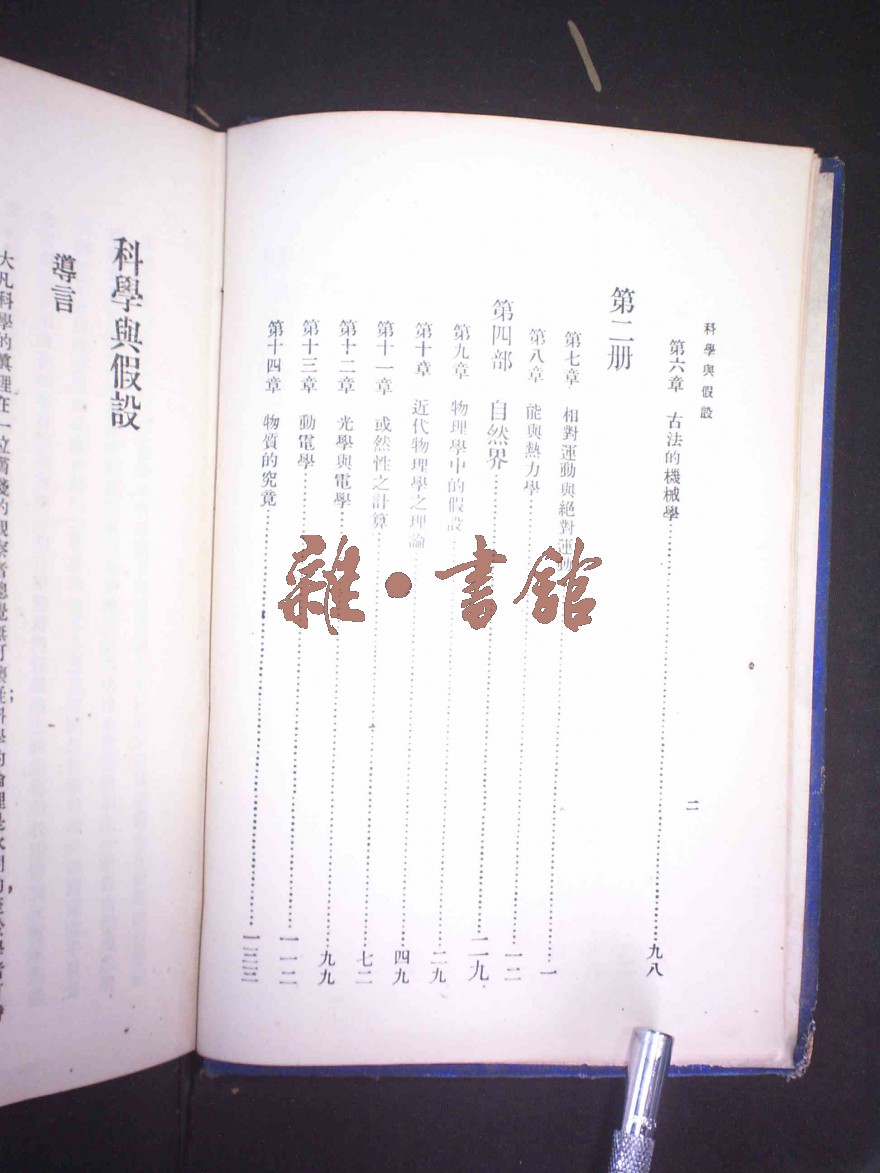 科學與假設
二
第六章　古法的機械學……九八
第二册
第七章　相對運動與絕對運動……一
第八章　能與熱力學……一二
第四部　自然界……二九
第九章　物理學中的假設……二九
第十章　近代物理學之理論……四九
第十一章　或然性之計算……七二
第十二章　光學與電學……九九
第十三章　動電學……一一二
第十四章　物質的究竟……一三三
科學與假設
導言
大凡科學的真理在一位膚淺的觀察者總覺無可懷疑；科學的論理是
雜·書館